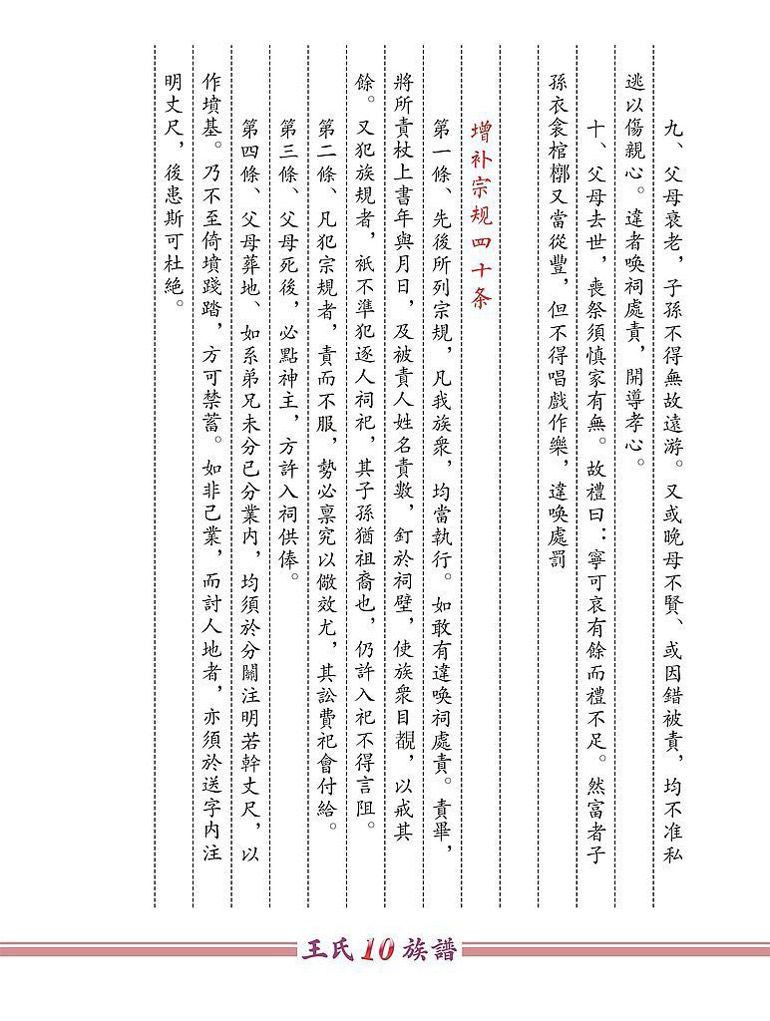 九、父母衰老，子孫不得無故遠游。又或晚母不賢、或因錯被責，均不准私
逃以傷親心。違者喚祠處責，開導孝心。
十、父母去世，喪祭須慎家有無。故禮曰：寧可哀有餘而禮不足。然富者子
孫衣衾棺槨又當從豐，但不得唱戲作樂，違喚處罰
增补宗规四十条
第一條、先後所列宗規，凡我族衆，均當執行。如敢有違喚祠處責。責畢，
將所責杖上書年與月日，及被責人姓名責數，釘於祠壁，使族衆目覩，以戒其
餘。又犯族規者，衹不準犯逐人祠祀，其子孫猶祖裔也，仍許入祀不得言阻。
第二條、凡犯宗規者，責而不服，勢必稟究以儆效尤，其訟費祀會付給。
第三條、父母死後，必點神主，方許入祠供俸。
第四條、父母葬地、如系弟兄未分已分業内，均須於分關注明若幹丈尺，以
作墳基。乃不至倚墳踐踏，方可禁蓄。如非己業，而討人地者，亦須於送字内注
明丈尺，後患斯可杜絶。
王氏10族譜